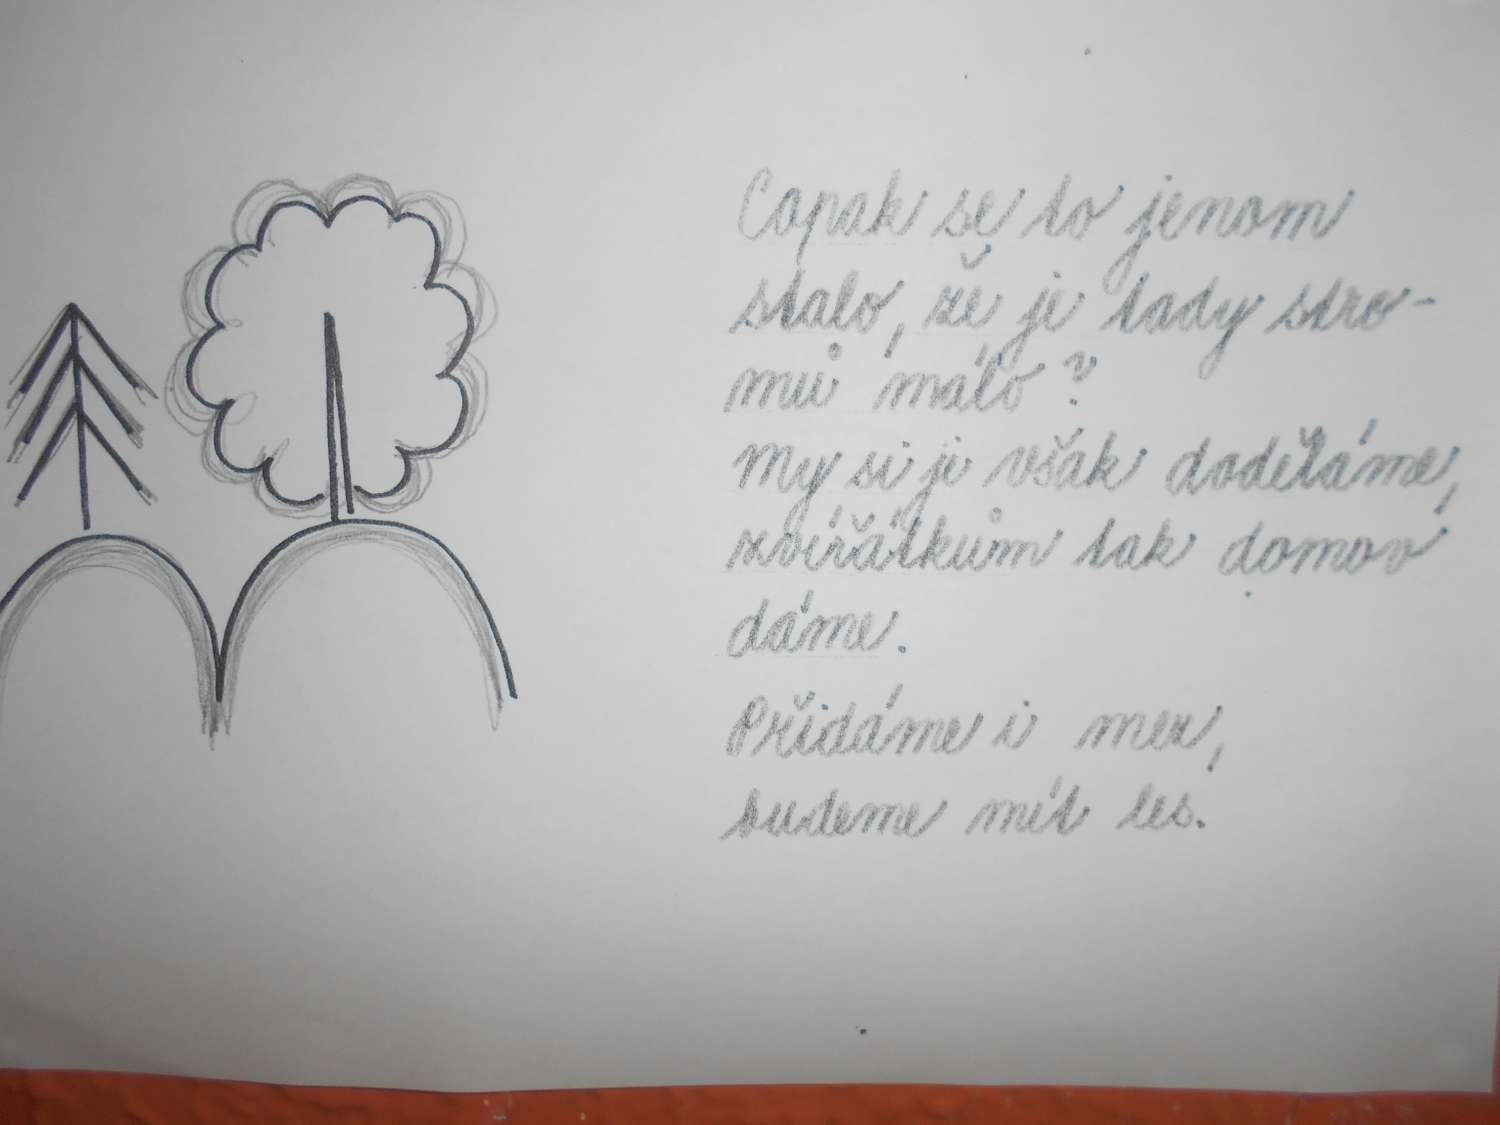 Copak se to jenom
stalo, že je tady stro-
mů málo?
My si je však doděláme,
zvířátkům tak domov
dáme.
Přidáme i mez,
budeme mít les.